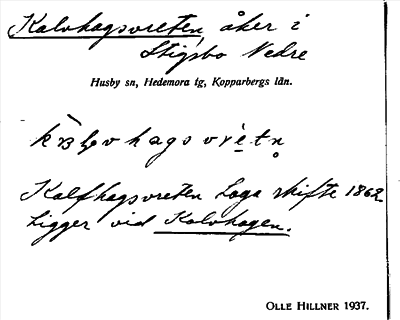 Kalvhagsvreten, åker i
Stigsbo Nedre
Husby sn, Hedemora tg, Kopparbergs län.
Kalfhagsvreten Laga skifte 1862
Ligger vid Kalvhagen.
OLLE HILLNER 1937.